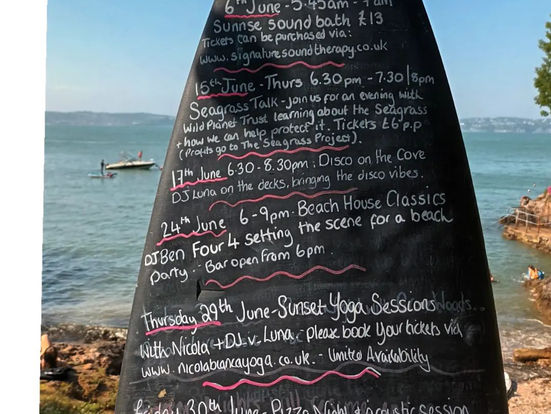 6th June - 5.45am - 7am
Sunrise sound bath £13
Tickets can be purchased via:
www.signaturesoundtherapy.co.uk
15th June - Thurs 6.30pm - 7.30/8pm
Seagrass Talk - join us for an evening with
Wild Planet Trust learning about the Seagrass
+ how we can help protect it. Tickets £6 p.p
(Profits go to The Seagrass Project).
17th June 6:30 - 8.30pm : Disco on the Cove
DJ Luna on the decks, bringing the disco vibes.
24th June 6-9pm - Beach House Classics
DJ Ben Four 4 setting the scene for a beach
party - Bar open from 6pm
Thursday 29th June - Sunset Yoga Sessions
with Nicola + DJ v. Luna - please book your tickets via
www.nicolabiancayoga.co.uk - Limited Availability
Friday 30th June - Pizza Night & acoustic session